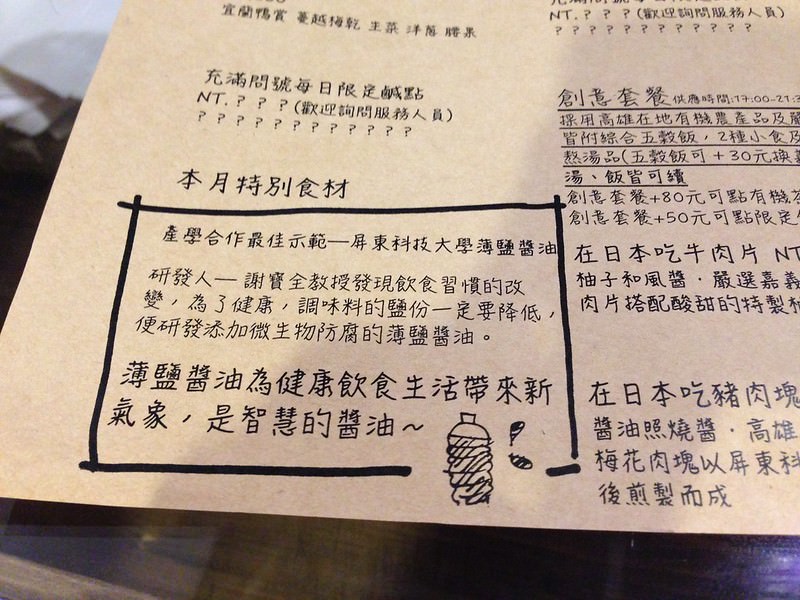 宜蘭鴨賞 蔓越梅乾 生菜 洋蔥 腰果
充滿問號每日限定鹹點
NT.？？？(歡迎詢問服務人員)
？？？？？？？？？？？？
本月特別食材
產學合作最佳示範—屏東科技大學薄鹽醬油
研發人—謝寶全教授發現飲食習慣的改
變，為了健康，調味料的鹽份一定要降低，
便研發添加微生物防腐的薄鹽醬油。
薄鹽醬油為健康飲食生活帶來新
氣象，是智慧的醬油～
NT.？？？(歡迎詢問服務人員)
？？？？？？？？？？？？
創意套餐 供應時間:17:00-21:3
採用高雄在地有機農產品及嚴
皆附綜合五穀飯，2種小食及
熬湯品(五穀飯可+30元換
湯、飯皆可續
創意套餐+80元可點有機茶
創意套餐+50元可點限定
在日本吃牛肉片 NT
柚子和風醬．嚴選嘉義
肉片搭配酸甜的特製
在日本吃豬肉塊
醬油照燒醬．高雄
梅花肉塊以屏東科
後煎製而成